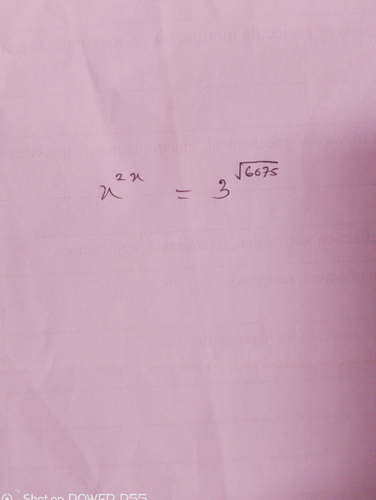 x^{2x} = 3^{\sqrt{6075}}
Shot on POWER P55